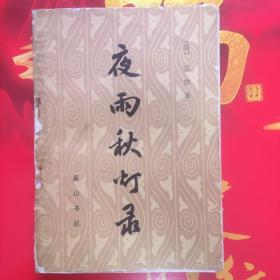 [清] 宣鼎 著
夜雨秋灯录
黄山书社